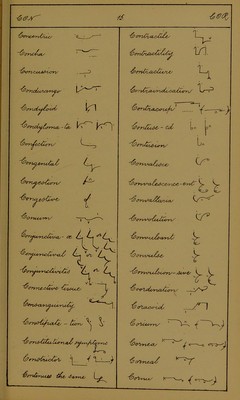 CON
18
COR
Concentric
Concha
Concussion
Condurango
Condyloid
Condyloma-ta
Confection
Congenital
Congestion
Congestive
Conium
Conjunctiva-æ
Conjunctival
Conjunctivitis
Connective tissue
Consanguinity
Constipate-tion
Constitutional symptoms
Constrictor
Continues the same
Contractile
Contractility
Contracture
Contraindication
Contuse-ed
Contusion
Convalesce
Convalescence-ent
Convolution
Convulse
Coordination
Coracoid
Corium
Cornea
Corneal